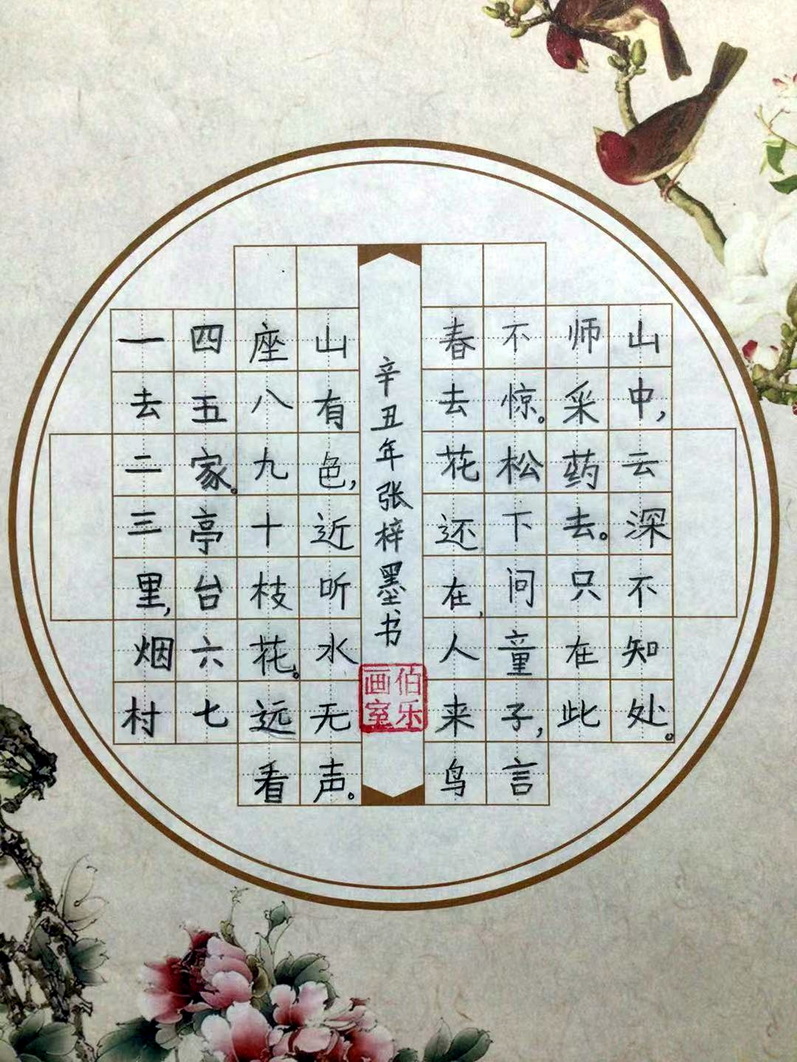 一去二三里,烟村
四五家。亭台六七
座八九十枝花。远看
山有色,近听水无声。
辛丑年张梓墨书
伯乐画室
春去花还在,人来鸟
不惊。松下问童子,言
师采药去。只在此
山中,云深不知处。